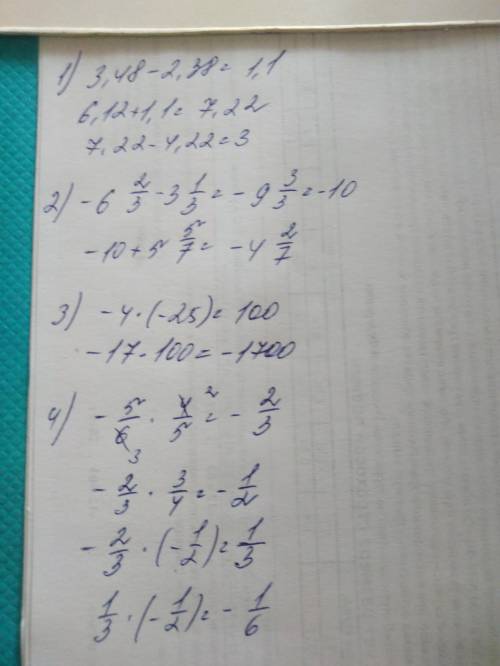 1) 3,48-2,38= 1,1
6,12+1,1= 7,22
7,22-4,22=3
2) -6 2/3 -3 1/3 = -9 3/3 = -10
-10+5 5/7 = -4 2/7
3) -4·(-25)= 100
-17·100= -1700
4) -5/6 3 · 4/5 2 = -2/3
-2/3 · 3/4 = -1/2
-2/3 · (-1/2)= 1/3
1/3 · (-1/2)= -1/6